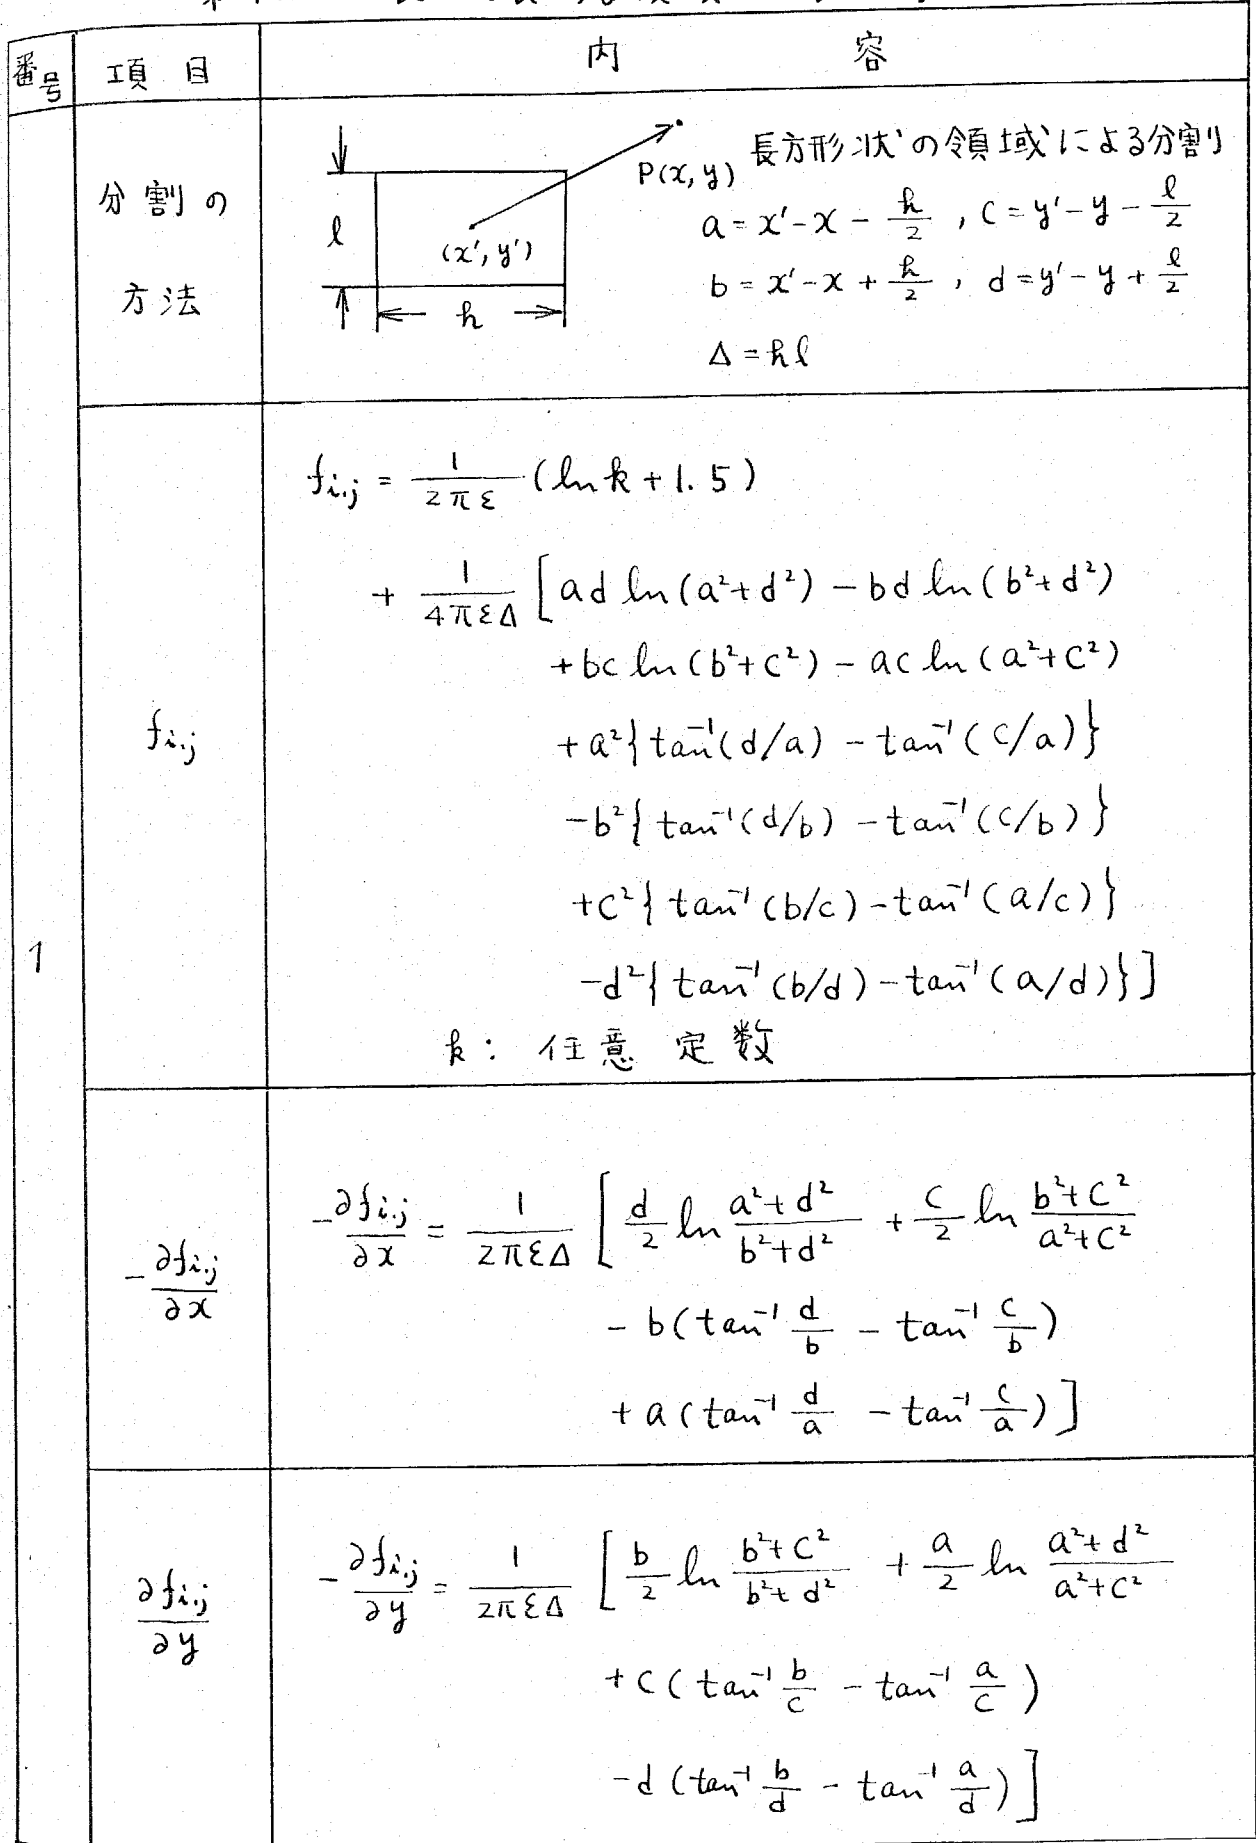 番号 項目 内容
分割の方法
l
(x', y')
h
P(x, y)
長方形状の領域による分割
a = x' - x - h/2 , c = y' - y - l/2
b = x' - x + h/2 , d = y' - y + l/2
Δ = hl
f_{i,j}
f_{i,j} = 1/(2πε) (ln k + 1.5)
+ 1/(4πεΔ) [ad ln(a²+d²) - bd ln(b²+d²)
+bc ln(b²+c²) - ac ln(a²+c²)
+a²{tan⁻¹(d/a) - tan⁻¹(c/a)}
-b²{tan⁻¹(d/b) - tan⁻¹(c/b)}
+c²{tan⁻¹(b/c) - tan⁻¹(a/c)}
-d²{tan⁻¹(b/d) - tan⁻¹(a/d)}]
k: 任意定数
1
-∂f_{i,j}/∂x
-∂f_{i,j}/∂x = 1/(2πεΔ) [d/2 ln (a²+d²)/(b²+d²) + c/2 ln (b²+c²)/(a²+c²)
- b(tan⁻¹ d/b - tan⁻¹ c/b)
+ a(tan⁻¹ d/a - tan⁻¹ c/a)]
∂f_{i,j}/∂y
-∂f_{i,j}/∂y = 1/(2πεΔ) [b/2 ln (b²+c²)/(b²+d²) + a/2 ln (a²+d²)/(a²+c²)
+c(tan⁻¹ b/c - tan⁻¹ a/c)
-d(tan⁻¹ b/d - tan⁻¹ a/d)]